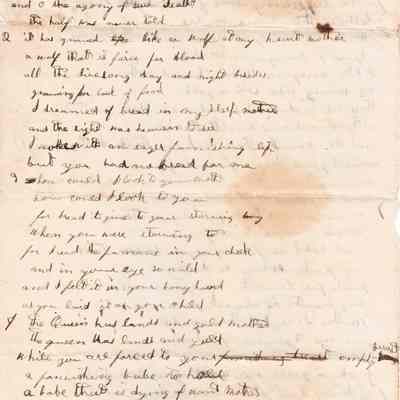 and O the agony of such death
the half was never told
2 it has gnawed like a wolf at my heart mother
a wolf that is fierce for blood
all the livelong day and night besides
gnawing for lack of food
I dreamed of bread in my sleep mother
and the sight was heaven to see
I awoke with an eager famishing lip
but you had no bread for me
3 how could I look to you mother
how could I look to you
for bread to give to your starving boy
when you were starving to
for I read the famine in your cheek
and in your eye so wild
and I felt it in your bony hand
as you laid it on your child
4 the Queen has lands and gold mother
the queen has lands and gold
while you are forced to your empty breast
a famishing babe to hold
a babe that is dying of want mother